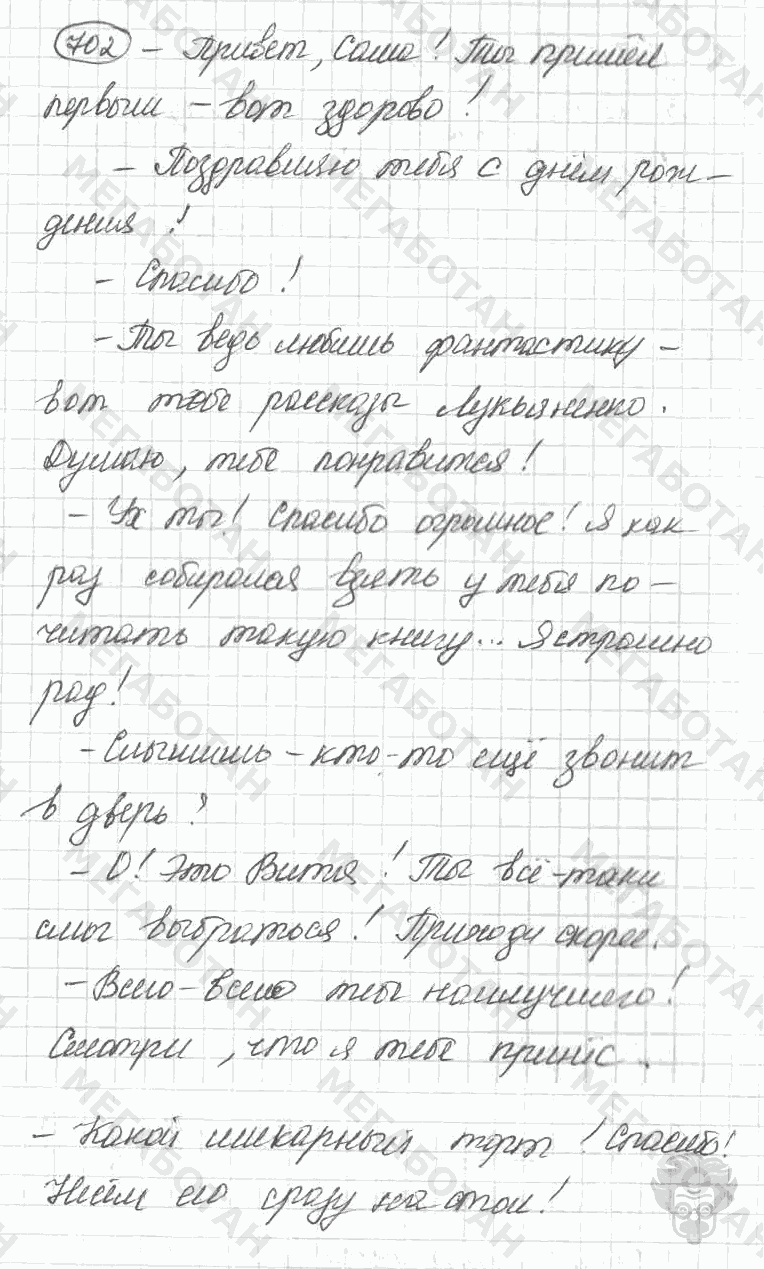 702 – Привет, Саша! Ты пришёл
первым – вот здорово!
– Поздравляю тебя с днём рож–
дения!
– Спасибо!
– Ты ведь любишь фантастику –
вот тебе рассказы Лукьяненко.
Думаю, тебе понравится!
– Ух ты! Спасибо огромное! Я как
раз собирался взять у тебя по–
читать такую книгу... Я страшно
рад!
– Слышишь – кто-то ещё звонит
в дверь?
– О! Это Витя! Ты всё-таки
смог выбраться! Приходи скорее.
– Всего-всего наилучшего!
Смотри, что я тебе принёс.
– Какой шикарный торт! Спасибо!
его сразу на стол!
МЕГАБОТАН